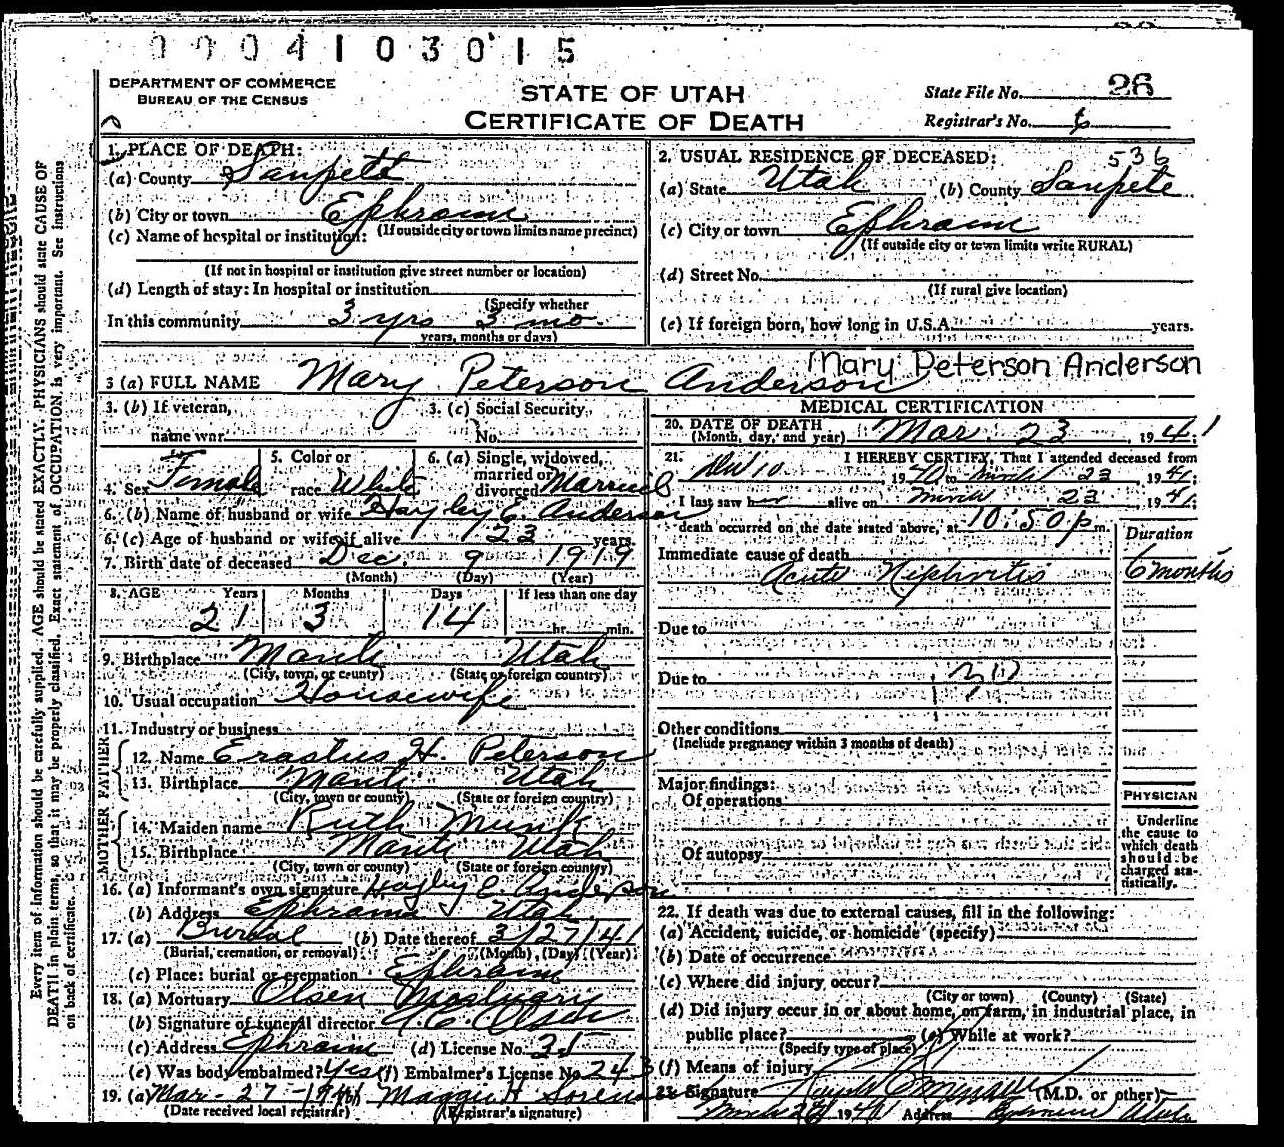 0004103015
DEPARTMENT OF COMMERCE
BUREAU OF THE CENSUS
STATE OF UTAH
CERTIFICATE OF DEATH
State File No. 26
Registrar's No. 6
1. PLACE OF DEATH:
(a) County Sanpete
(b) City or town Ephraim
(If outside city or town limits name precinct)
(c) Name of hospital or institution:
(If not in hospital or institution give street number or location)
(d) Length of stay: In hospital or institution
(Specify whether
In this community 3 yrs 3 mo.
years, months or days)
2. USUAL RESIDENCE OF DECEASED: 536
(a) State Utah (b) County Sanpete
(c) City or town Ephraim
(If outside city or town limits write RURAL)
(d) Street No.
(If rural give location)
(e) If foreign born, how long in U.S.A. years.
Mary Peterson Anderson
3 (a) FULL NAME Mary Peterson Anderson
3. (b) If veteran,
name war
3. (c) Social Security
No.
4. Sex Female
5. Color or
race White
6. (a) Single, widowed,
married or
divorced Married
6. (b) Name of husband or wife Hayley E. Anderson
6. (c) Age of husband or wife if alive 23 years.
7. Birth date of deceased Dec. 9 1919
(Month) (Day) (Year)
8. AGE Years Months Days If less than one day
21 3 14 hr. min.
9. Birthplace Manti Utah
(City, town, or county) (State or foreign country)
10. Usual occupation Housewife
11. Industry or business
FATHER
12. Name Erastus H. Peterson
13. Birthplace Manti Utah
(City, town or county) (State or foreign country)
MOTHER
14. Maiden name Ruth Munk
15. Birthplace Manti Utah
(City, town or county) (State or foreign country)
16. (a) Informant's own signature Hayley E. Anderson
(b) Address Ephraim Utah
17. (a) Burial (b) Date thereof 3/27/41
(Burial, cremation, or removal) (Month) (Day) (Year)
(c) Place: burial or cremation Ephraim
18. (a) Mortuary Olsen Mortuary
(b) Signature of funeral director Olsen
(c) Address Ephraim (d) License No.
(e) Was body embalmed? Yes (f) Embalmer's License No. 243
19. (a) Mar - 27 - 1941 Maggie H. Sorensen
(Date received local registrar) (Registrar's signature)
MEDICAL CERTIFICATION
20. DATE OF DEATH
(Month, day, and year) Mar. 23, 1941;
21. I HEREBY CERTIFY, That I attended deceased from
10, 1940 to March 23 1941;
I last saw her alive on March 23 1941;
death occurred on the date stated above, at 10:50 p m.
Duration
Immediate cause of death
Acute Nephritis 6 months
Due to
Due to
Other conditions
(Include pregnancy within 3 months of death)
Major findings:
Of operations
Of autopsy
PHYSICIAN
Underline
the cause to
which death
should be
charged sta-
tistically.
22. If death was due to external causes, fill in the following:
(a) Accident, suicide, or homicide (specify)
(b) Date of occurrence
(c) Where did injury occur?
(City or town) (County) (State)
(d) Did injury occur in or about home, on farm, in industrial place, in
public place? (e) While at work?
(Specify type of place)
(f) Means of injury
23. Signature (M.D. or other)
March 1941 Address Utah
Every item of information should be carefully supplied. AGE should be stated EXACTLY. PHYSICIANS should state CAUSE OF
DEATH in plain terms, so that it may be properly classified. Exact statement of OCCUPATION is very important. See instructions
on back of certificate.